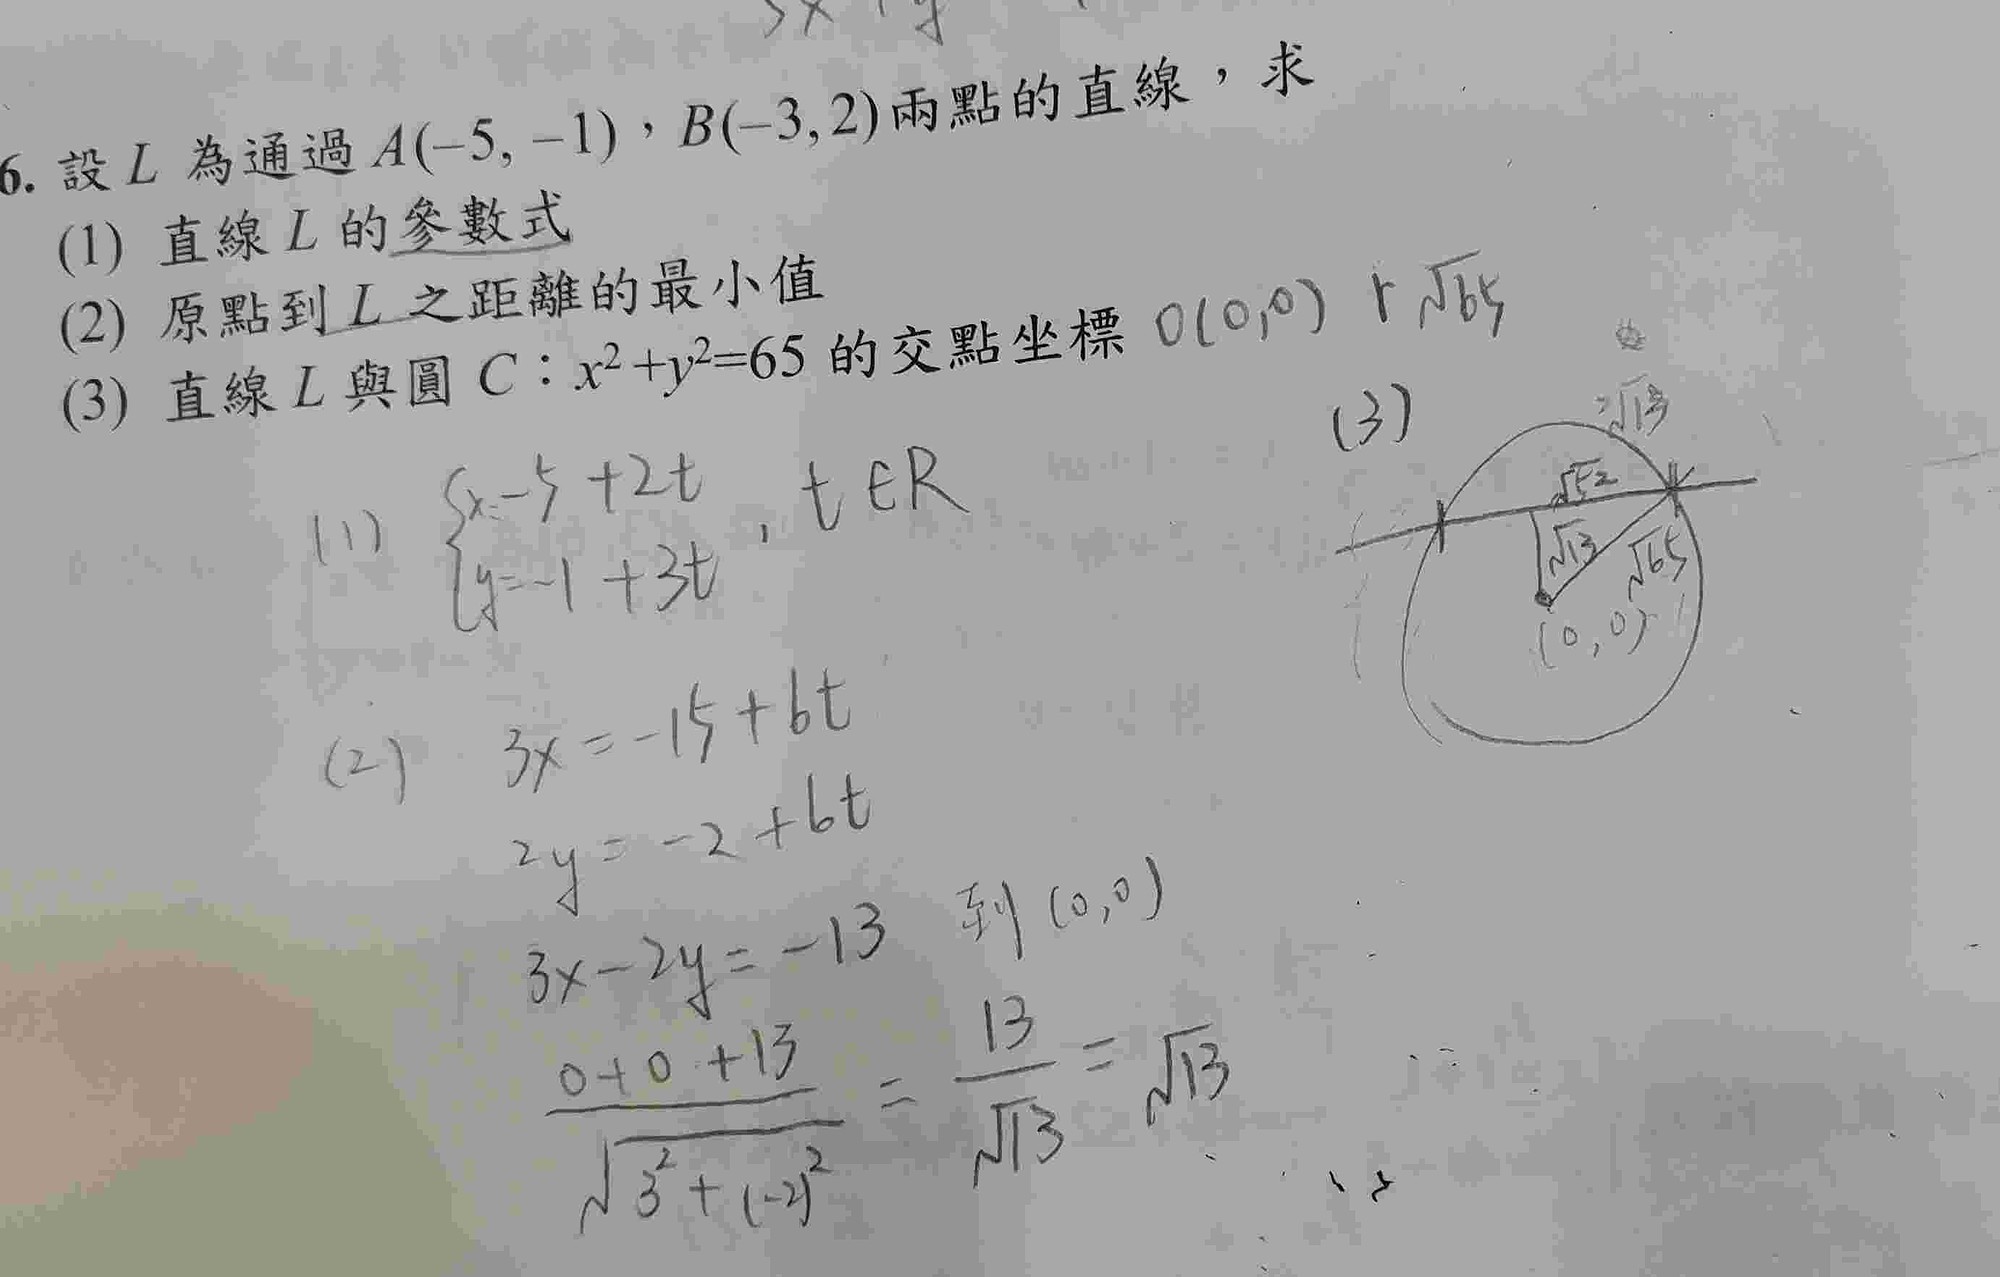 6. 設 L 為通過 A(−5, −1)，B(−3, 2) 兩點的直線，求
(1) 直線 L 的參數式
(2) 原點到 L 之距離的最小值
(3) 直線 L 與圓 C：x²+y²=65 的交點坐標 O(0,0) r √65
(1) { x=-5+2t
y=-1+3t , t∈R
(2) 3x=-15+6t
2y=-2+6t
3x-2y=-13 到(0,0)
(0+0+13)/√(3²+(-2)²) = 13/√13 = √13
(3)
2√13
√52
√13 √65
(0,0)